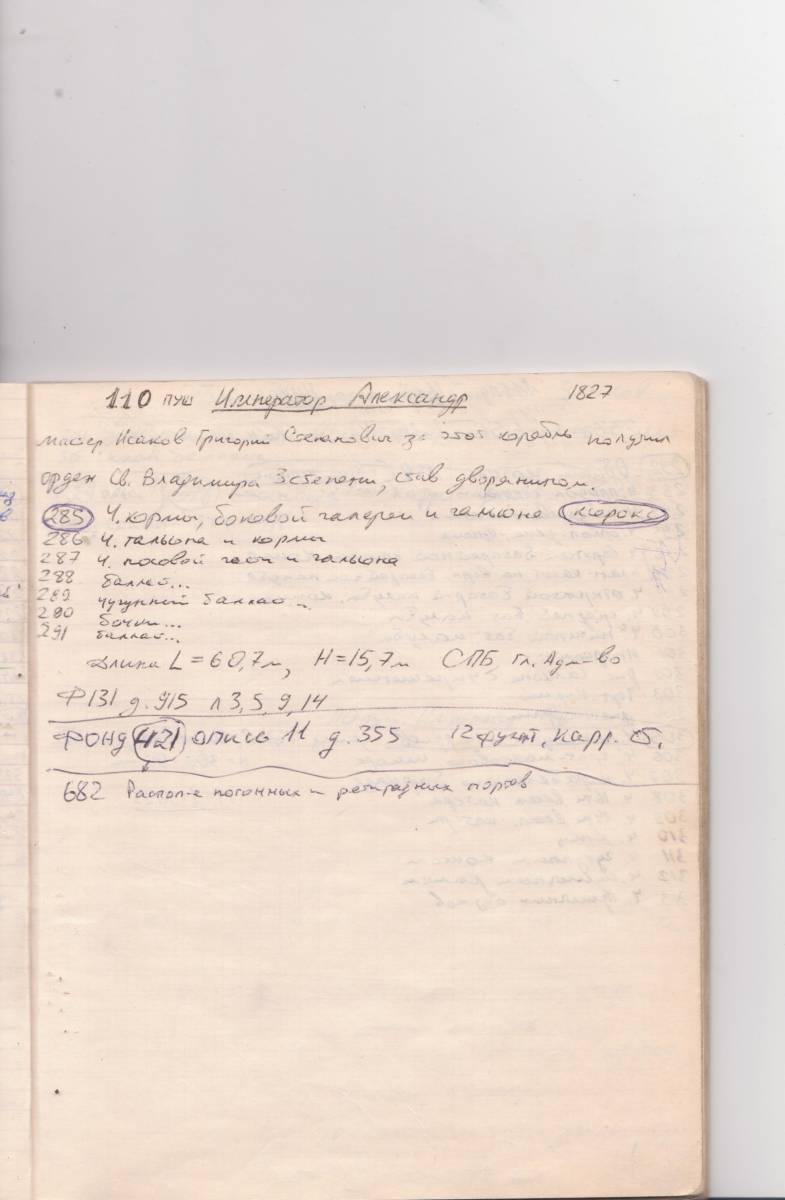 110 пуш Император Александр 1827
мастер Исаков Григорий Степанович за этот корабль получил
орден Св. Владимира 3 степени, став дворянином.
285 Ч. кормы, боковой галереи и гальюна ксерокс
286 Ч. гальюна и кормы
287 Ч. носовой части и гальюна
288 балласт...
289 чугунный балласт...
290 бочки...
291 балласт...
Длина L = 60,7 м, H = 15,7 м СПБ Гл. Адм-во
Ф 131 д. 915 л 3, 5, 9, 14
ФОНД 421 опись 11 д. 355 12 фунт, карр. б.
682 Распол-е погонных и ретирадных портов